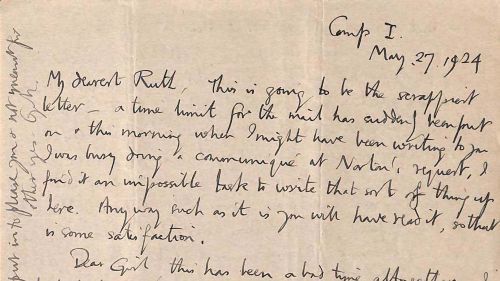 Camp I.
May. 27. 1924
My dearest Ruth, This is going to be the scrappiest
letter – a time limit for the mail has suddenly been put
on & this morning when I might have been writing to you
I was busy doing a communiqué at Norton's request. I
find it an impossible task to write that sort of thing up
here. Anyway such as it is you will have read it, so that
is some satisfaction.
Dear Girl, this has been a bad time altogether. I
put in to please you & not meant for
other eyes G.M.